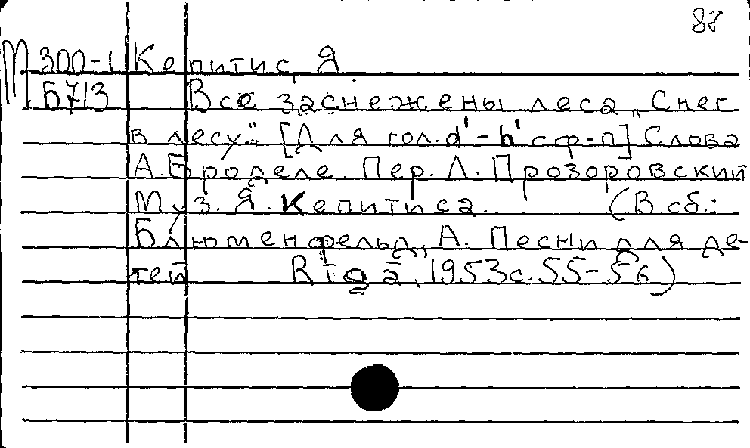 87
М 300-1 Кепитис, Я.
Б713 Все заснежены леса „Снег
в лесу". [Для гол. d'-h' с ф-п] Слова
А. Броделе. Пер. Л. Прозоровский
Муз. Я. Кепитиса. (В сб.:
Блюменфельд, А. Песни для де-
тей Rīgā, 1953 с. 55-56)